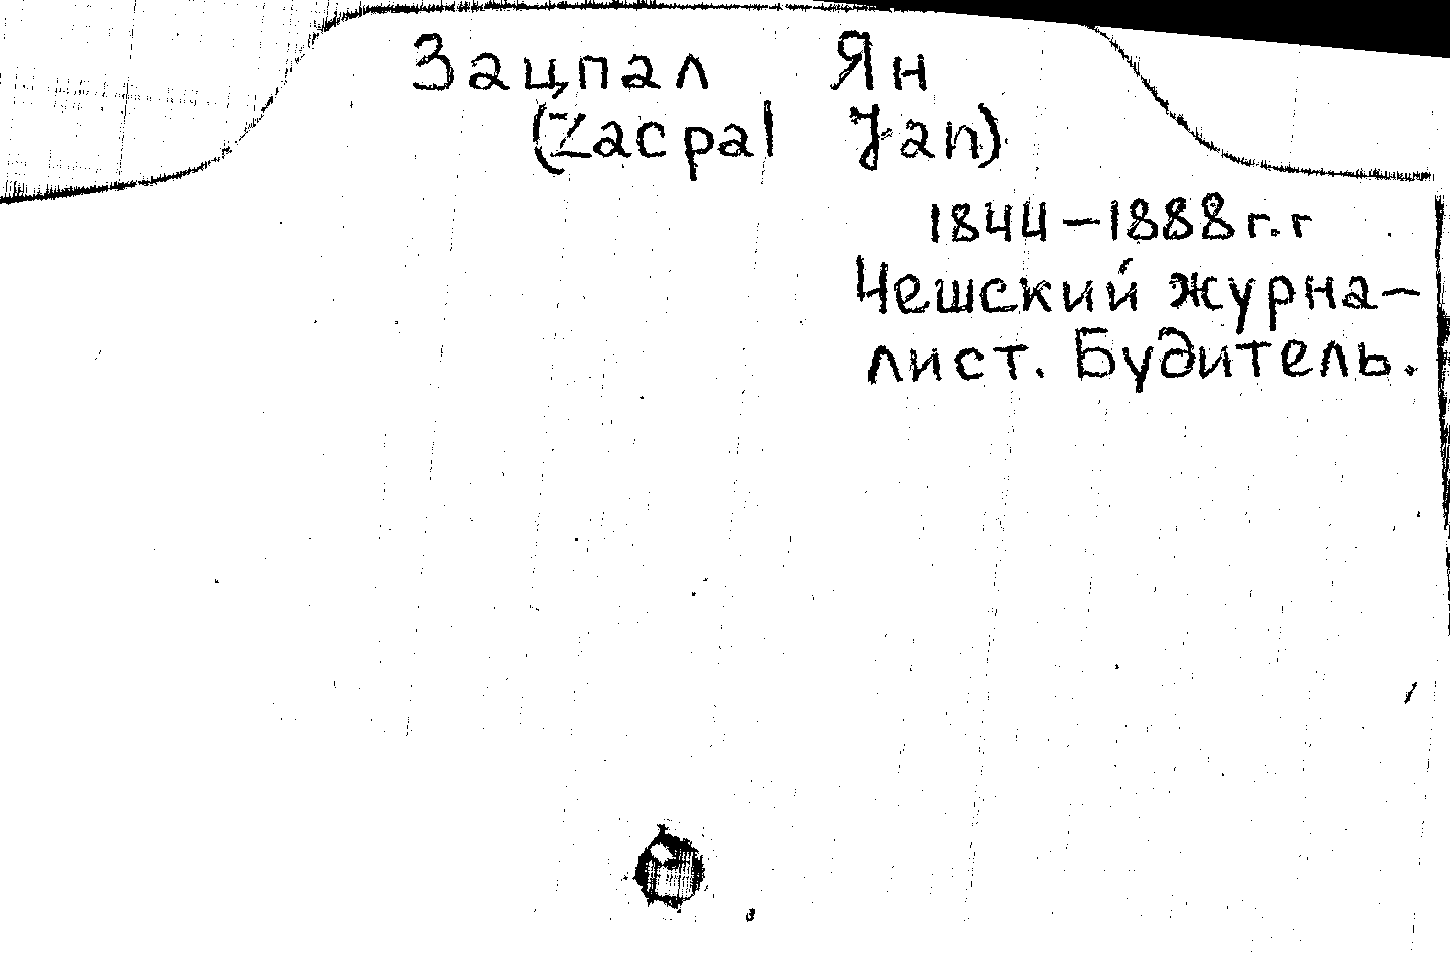 Зацпал Ян
(Zacpal Jan)
1844-1888 г.г
Чешский журна-
лист. Будитель.